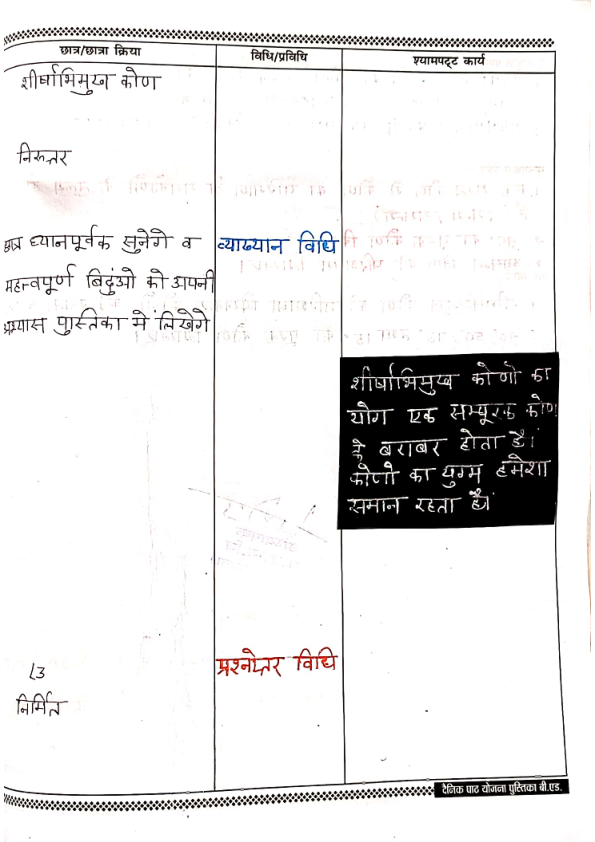 छात्र/छात्रा क्रिया
विधि/प्रविधि
श्यामपट्ट कार्य
शीर्षाभिमुख कोण
निरूत्तर
छात्र ध्यानपूर्वक सुनेगे व
महत्त्वपूर्ण बिदुंओ को अपनी
अभ्यास पुस्तिका मे लिखेगे
व्याख्यान विधि
शीर्षाभिमुख कोणो का
योग एक सम्पूरक कोण
के बराबर होता है।
कोणो का युग्म हमेशा
समान रहता है।
प्रश्नोत्तर विधि
13
निर्मित
दैनिक पाठ योजना पुस्तिका बी.एड.